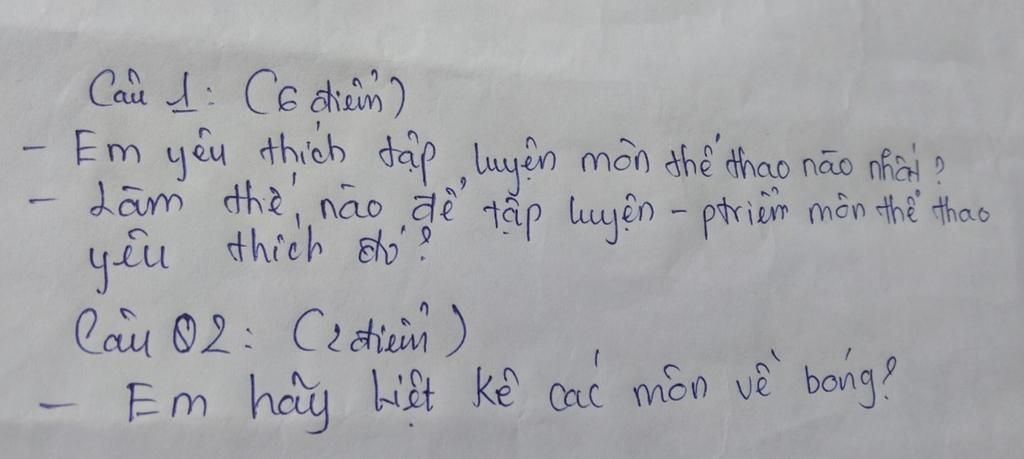 Câu 1: (6 điểm)
- Em yêu thích tập luyện môn thể thao nào nhất?
- Làm thế nào để tập luyện - ptriển môn thể thao
yêu thích đó?
Câu 02: (2 điểm)
- Em hãy liệt kê các môn về bóng?